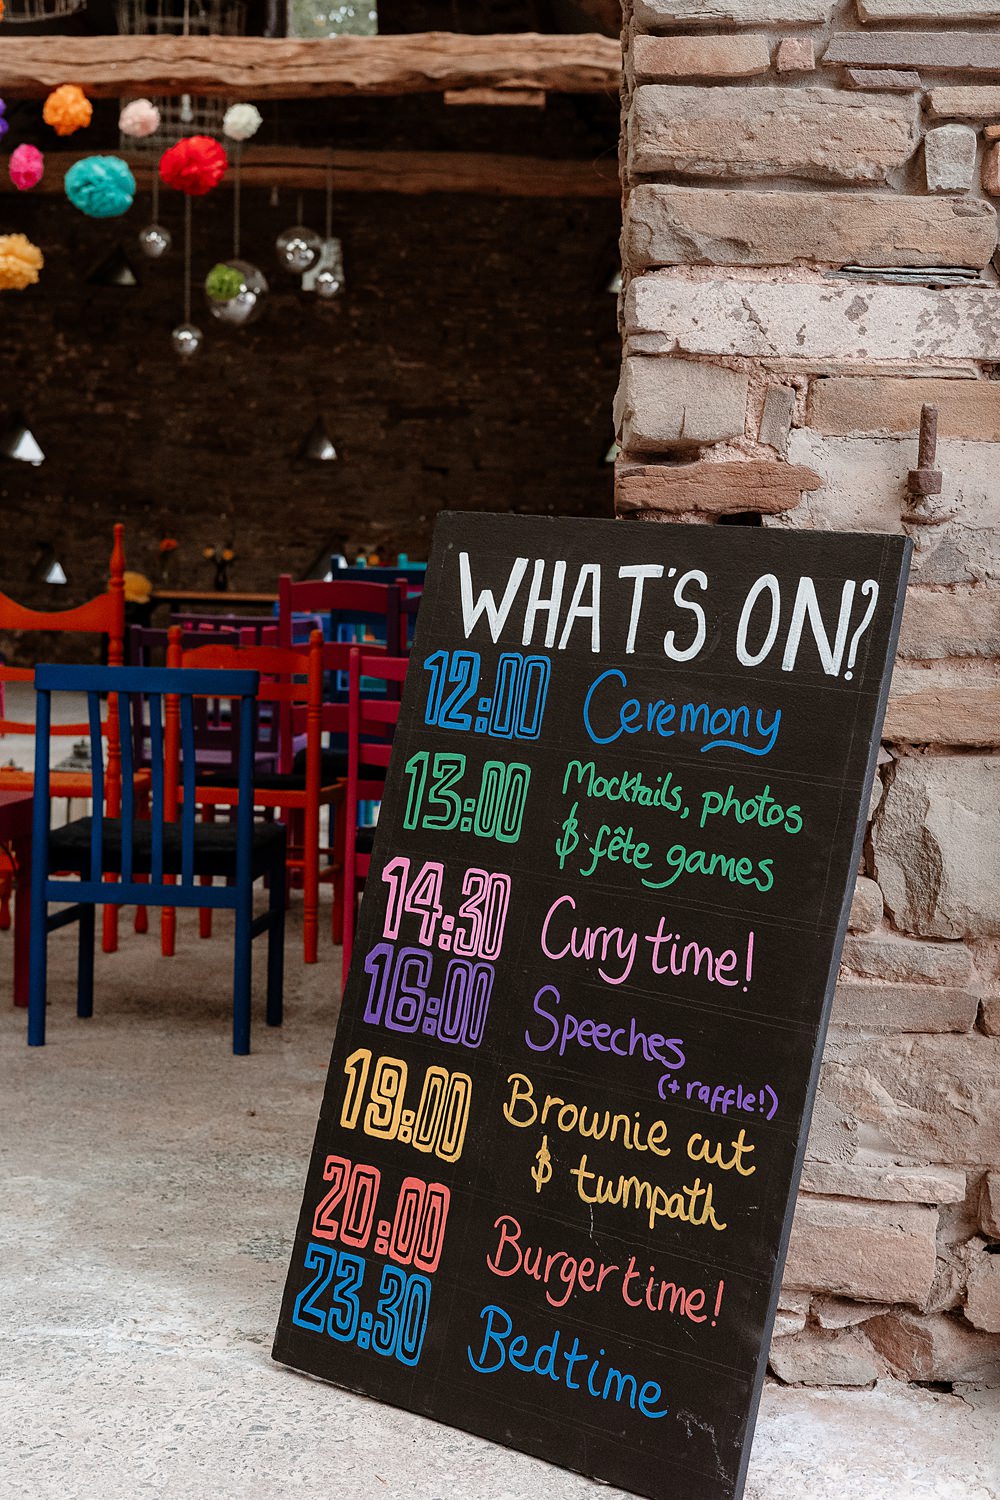 WHAT'S ON?
12:00 Ceremony
13:00 Mocktails, photos
& fête games
14:30 Curry time!
16:00 Speeches
(+ raffle!)
19:00 Brownie cut
& twmpath
20:00 Burger time!
23:30 Bedtime